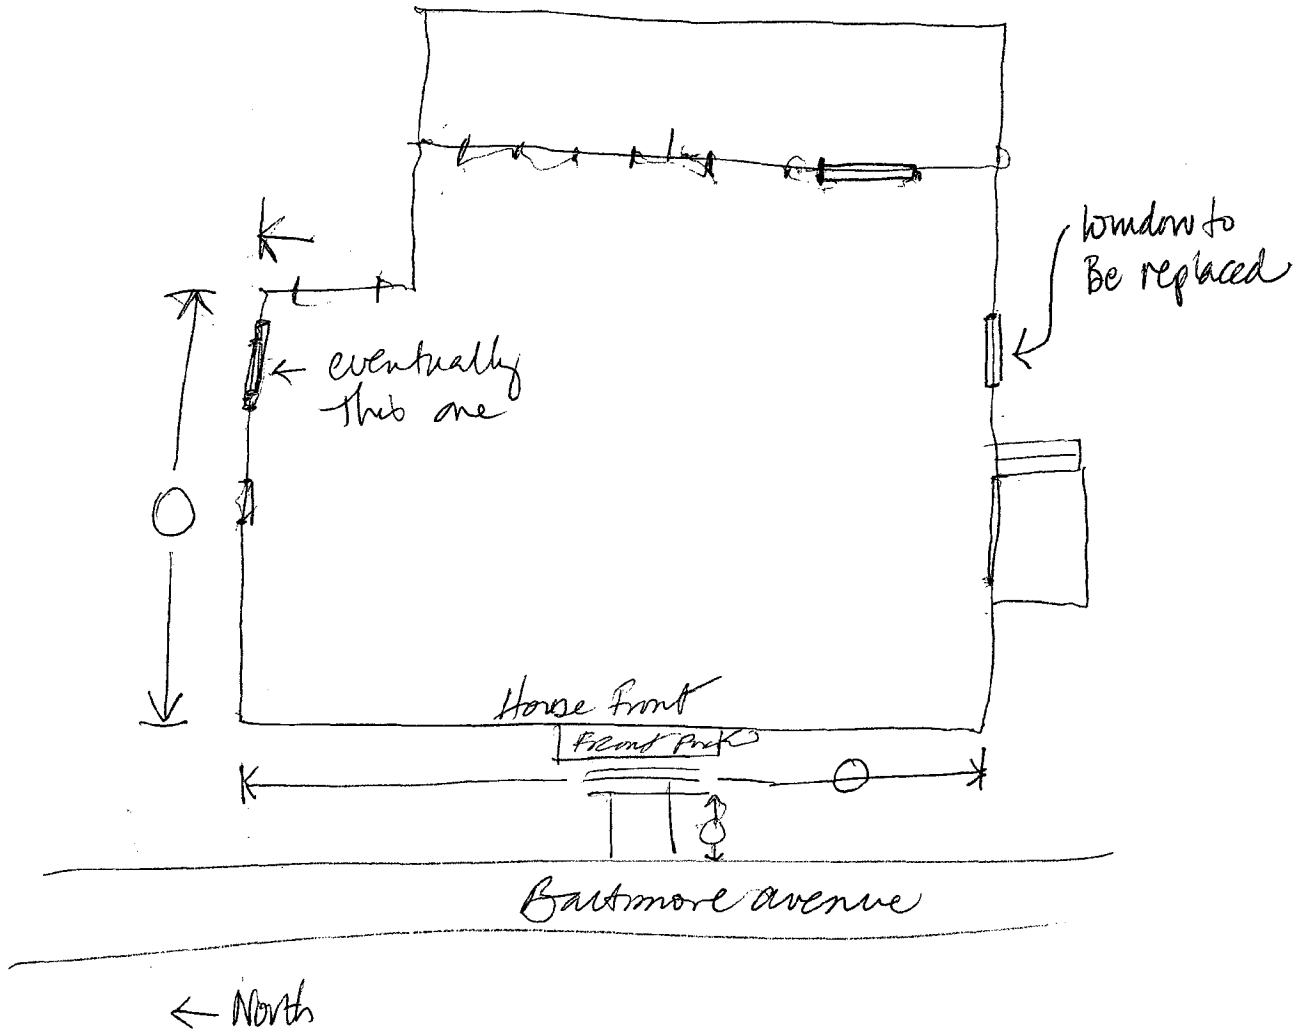 Window to
Be replaced
eventually
This one
House Front
Front Porch
Baltimore avenue
North